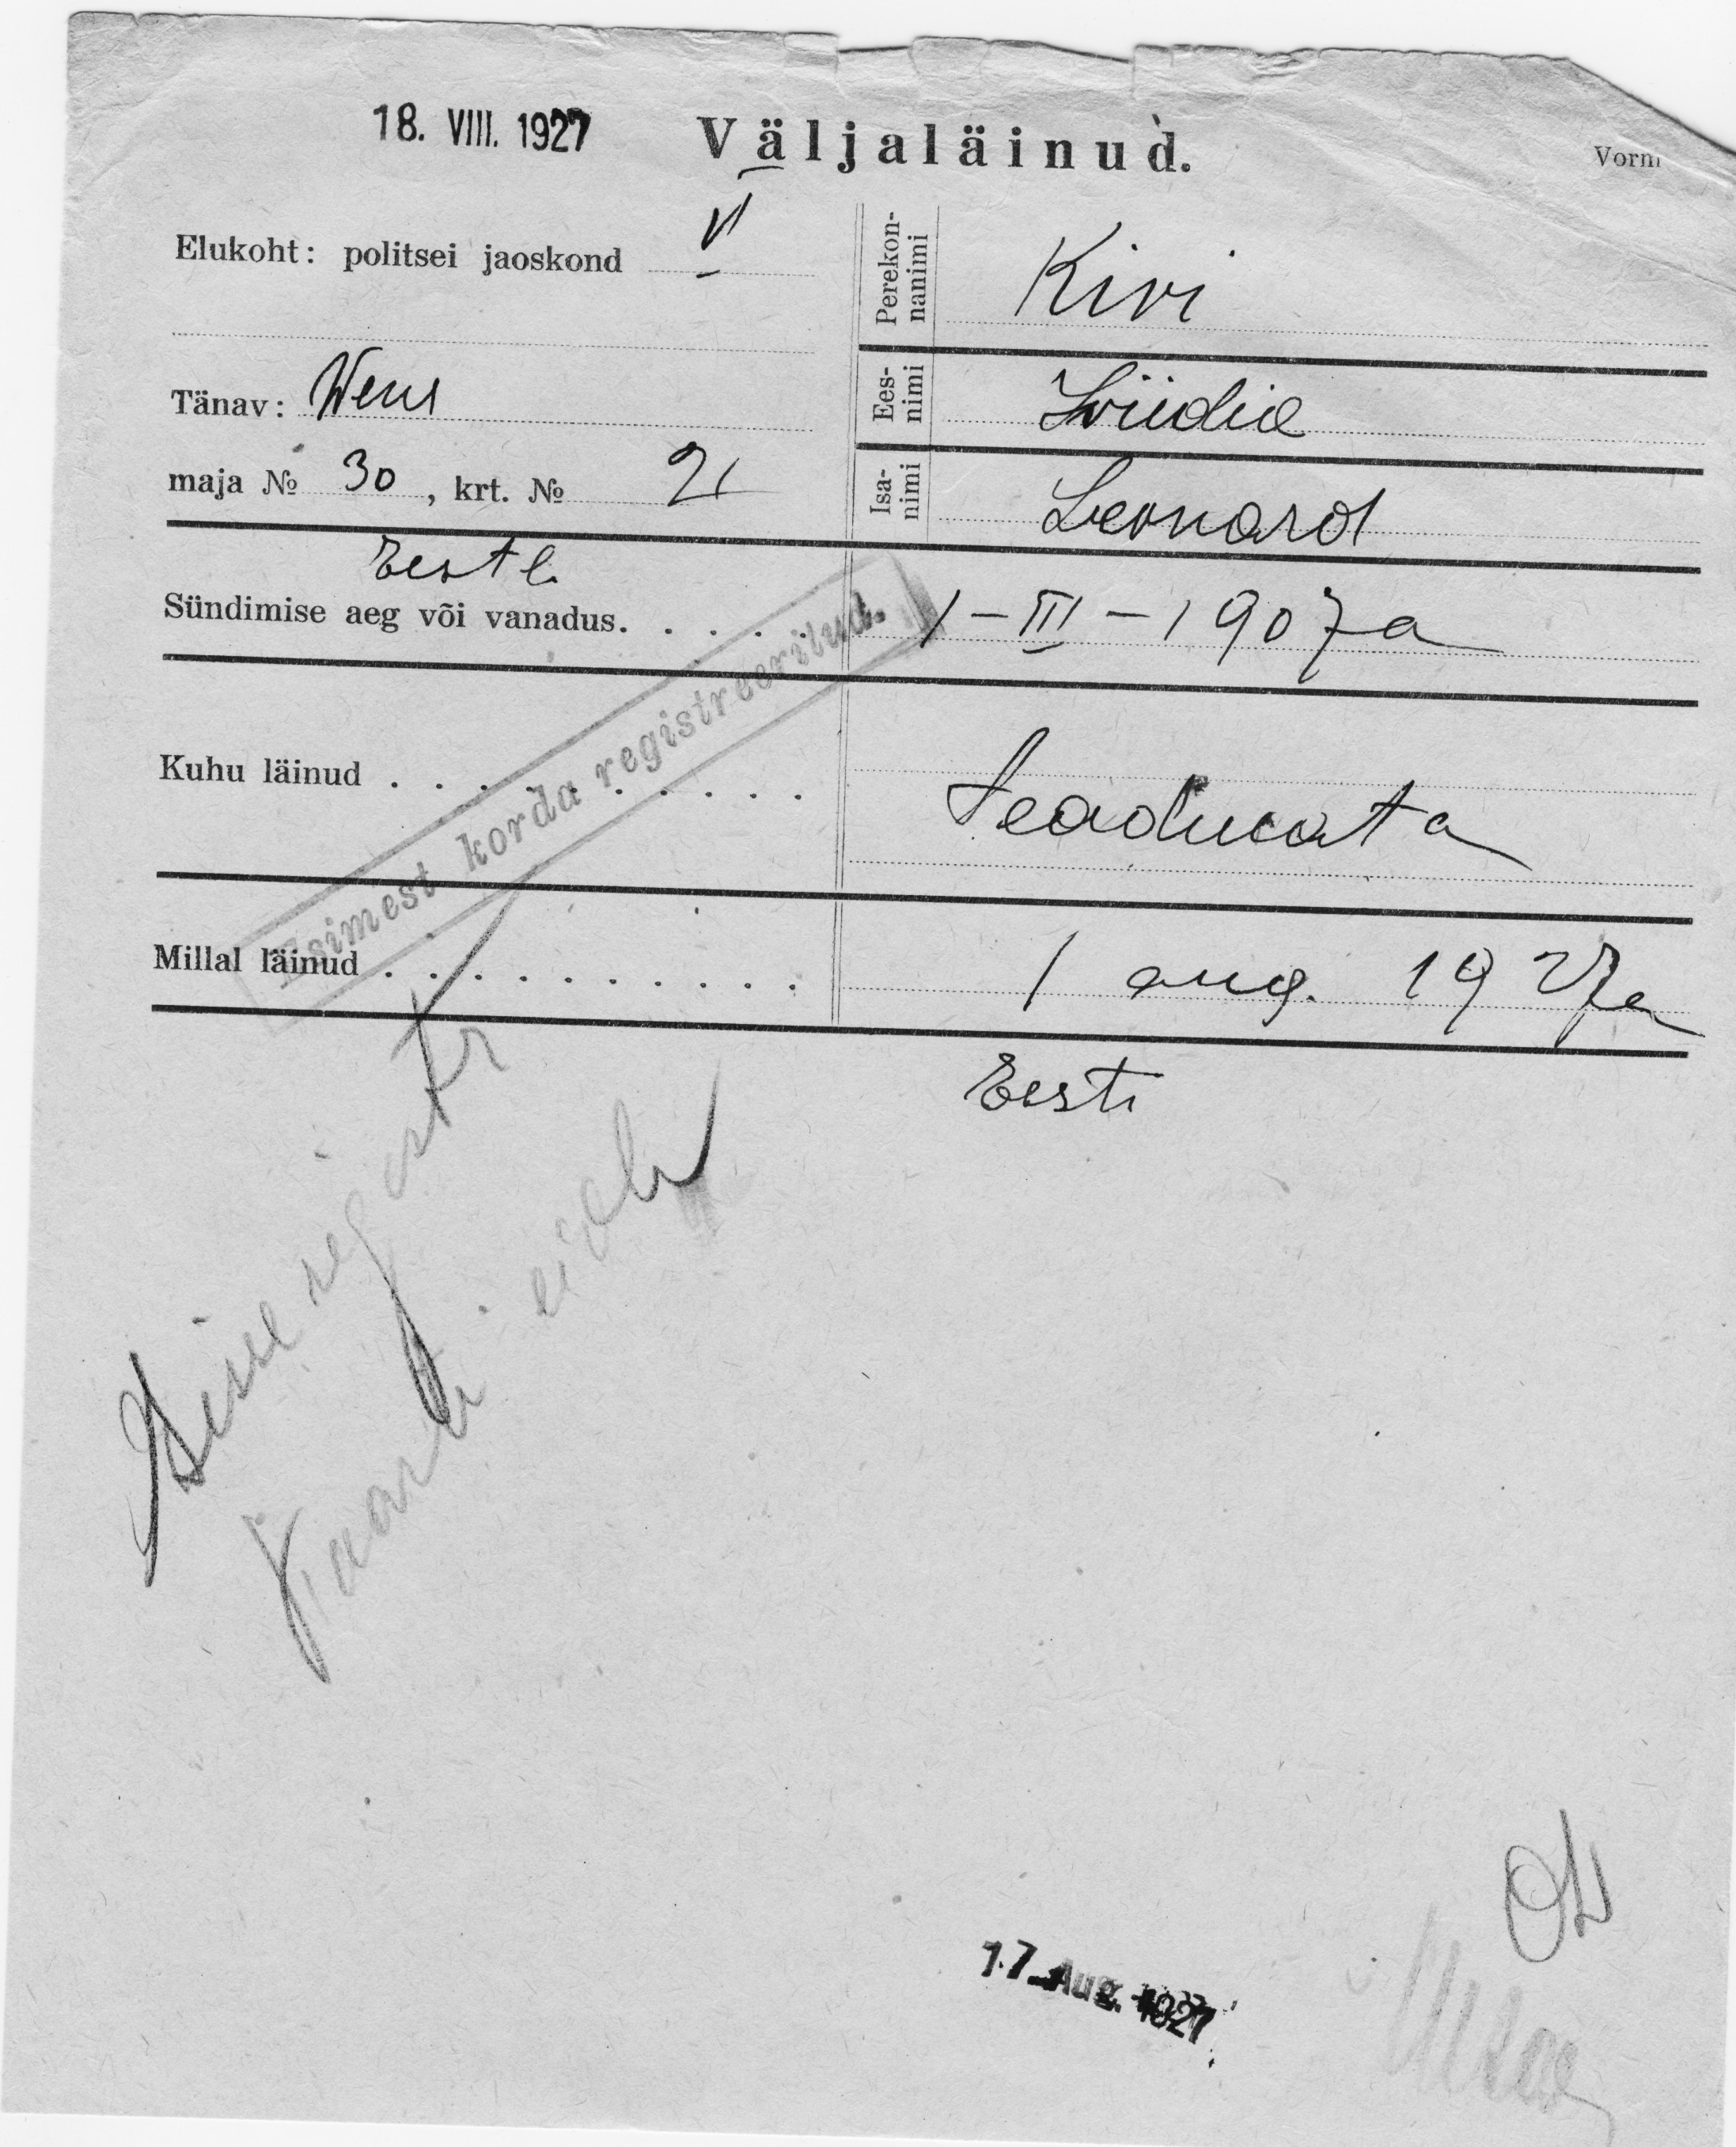 18. VIII. 1927 Väljaläinud. Vorm
Elukoht: politsei jaoskond VI
Perekonnanimi Kivi
Tänav: Wene
Eesnimi Lüidia
maja № 30, krt. № 21
Isanimi Leonard
Eestl.
Sündimise aeg või vanadus. 1-III-1907 a
Esimest korda registreeritud.
Kuhu läinud Seadmata
Millal läinud 1 aug. 1927 a
Eesti
Sisse registr
Kaarti ei ole
17. Aug. 1927